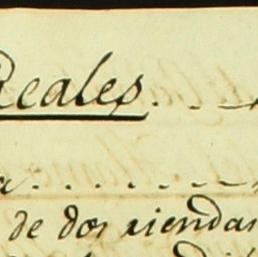 Reales
a
de dos riendas